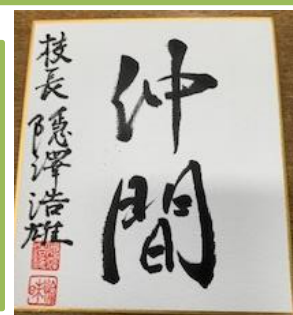 仲間
校長 隠澤浩雄